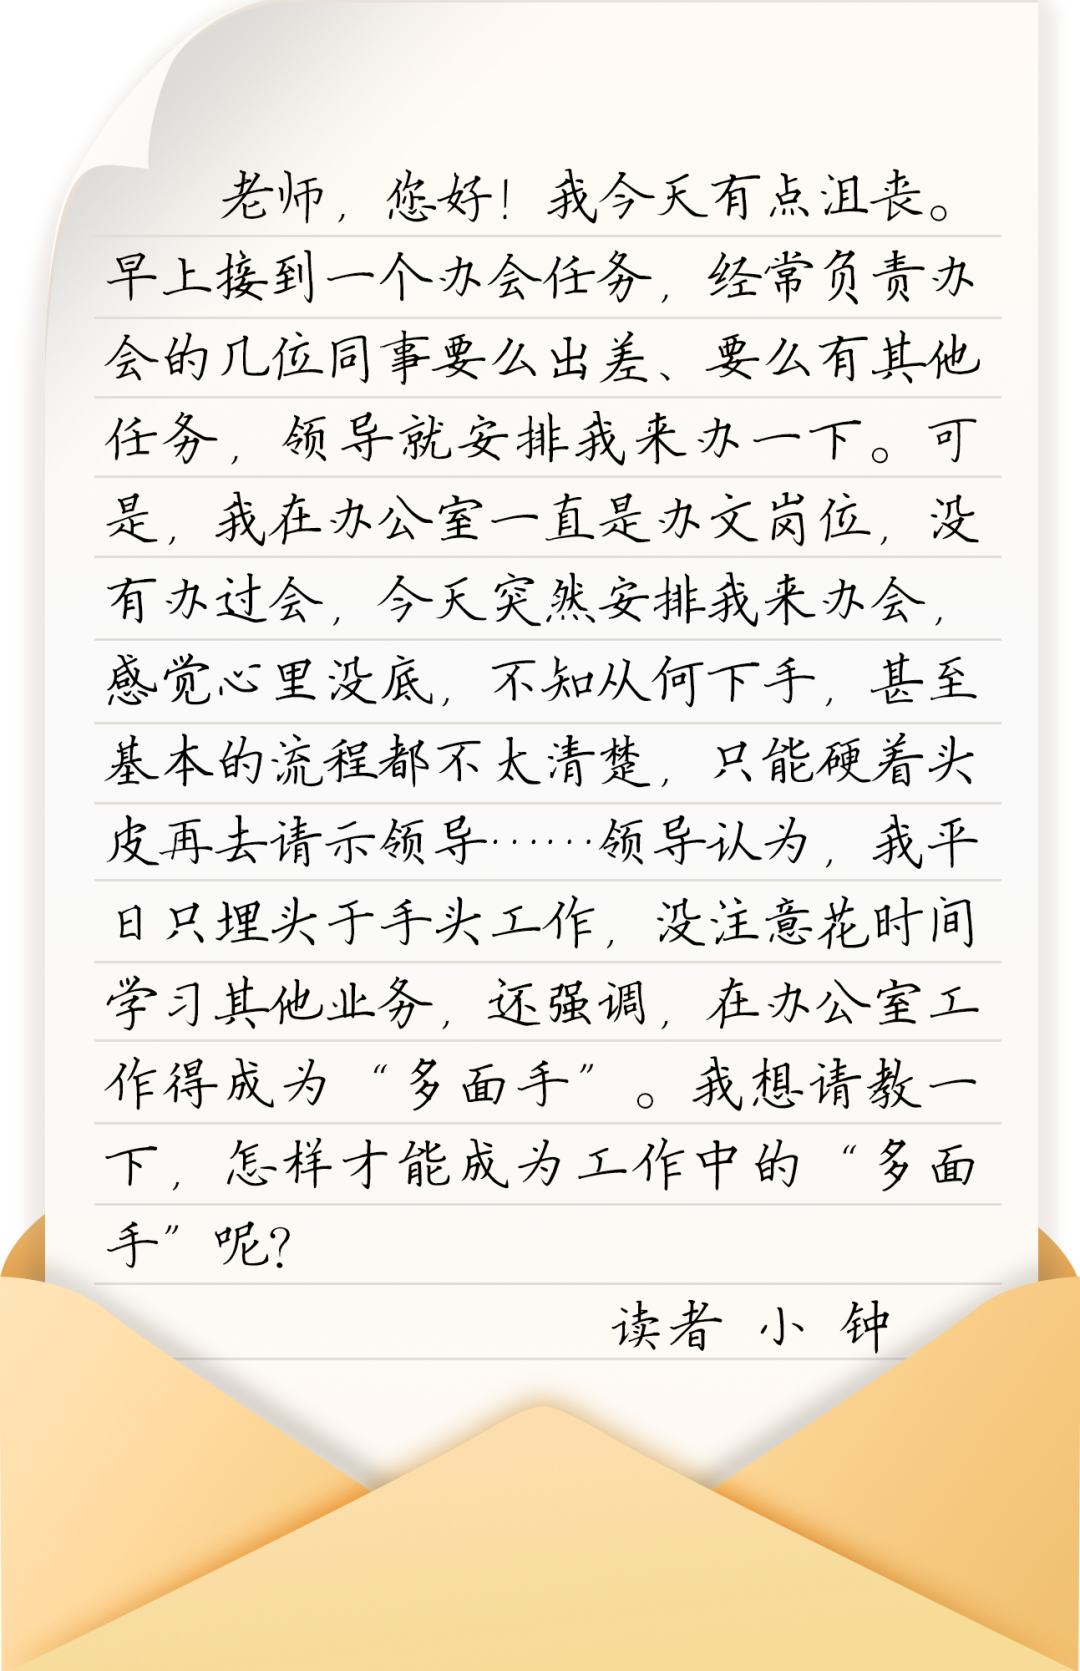 老师，您好！我今天有点沮丧。
早上接到一个办会任务，经常负责办
会的几位同事要么出差、要么有其他
任务，领导就安排我来办一下。可
是，我在办公室一直是办文岗位，没
有办过会，今天突然安排我来办会，
感觉心里没底，不知从何下手，甚至
基本的流程都不太清楚，只能硬着头
皮再去请示领导……领导认为，我平
日只埋头于手头工作，没注意花时间
学习其他业务，还强调，在办公室工
作得成为“多面手”。我想请教一
下，怎样才能成为工作中的“多面
手”呢？
读者 小 钟